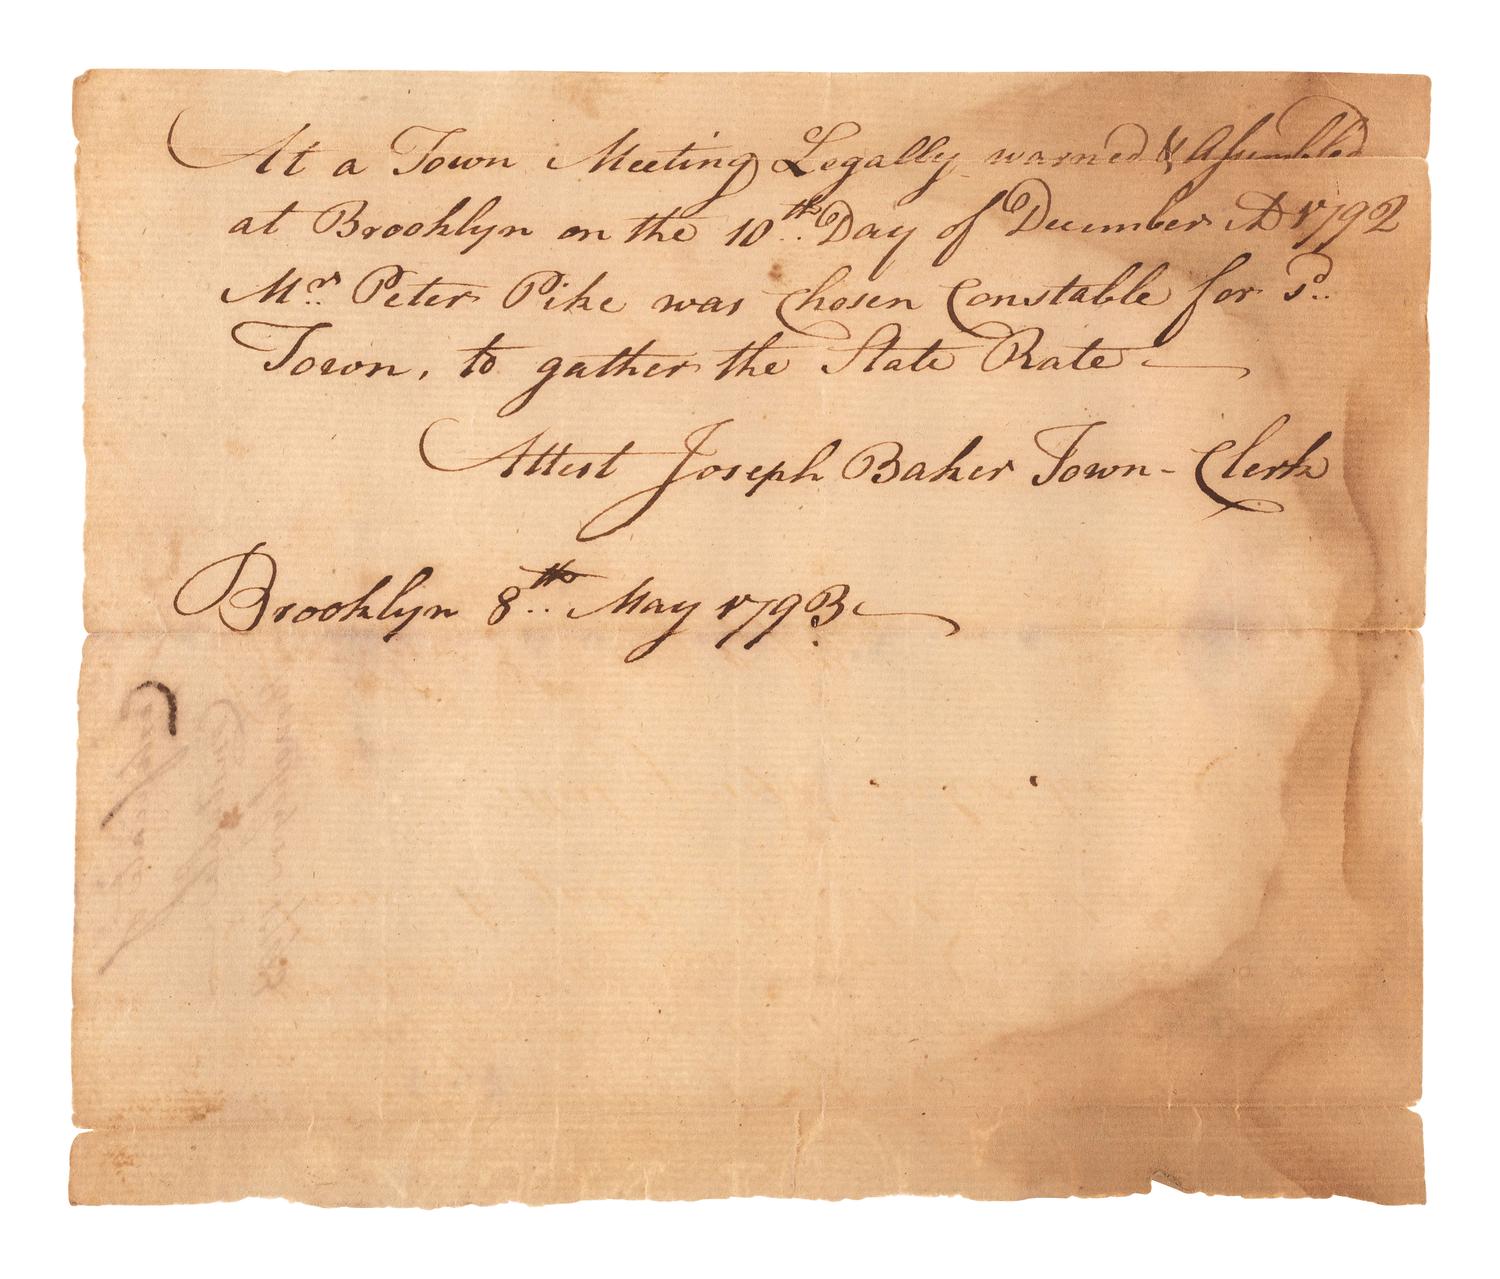 At a Town Meeting Legally warned & Assembled
at Brooklyn on the 10th Day of December AD 1792
Mr. Peter Pike was Chosen Constable for sd.
Town, to gather the State Rate
Attest Joseph Baker Town-Clerk
Brooklyn 8th May 1793